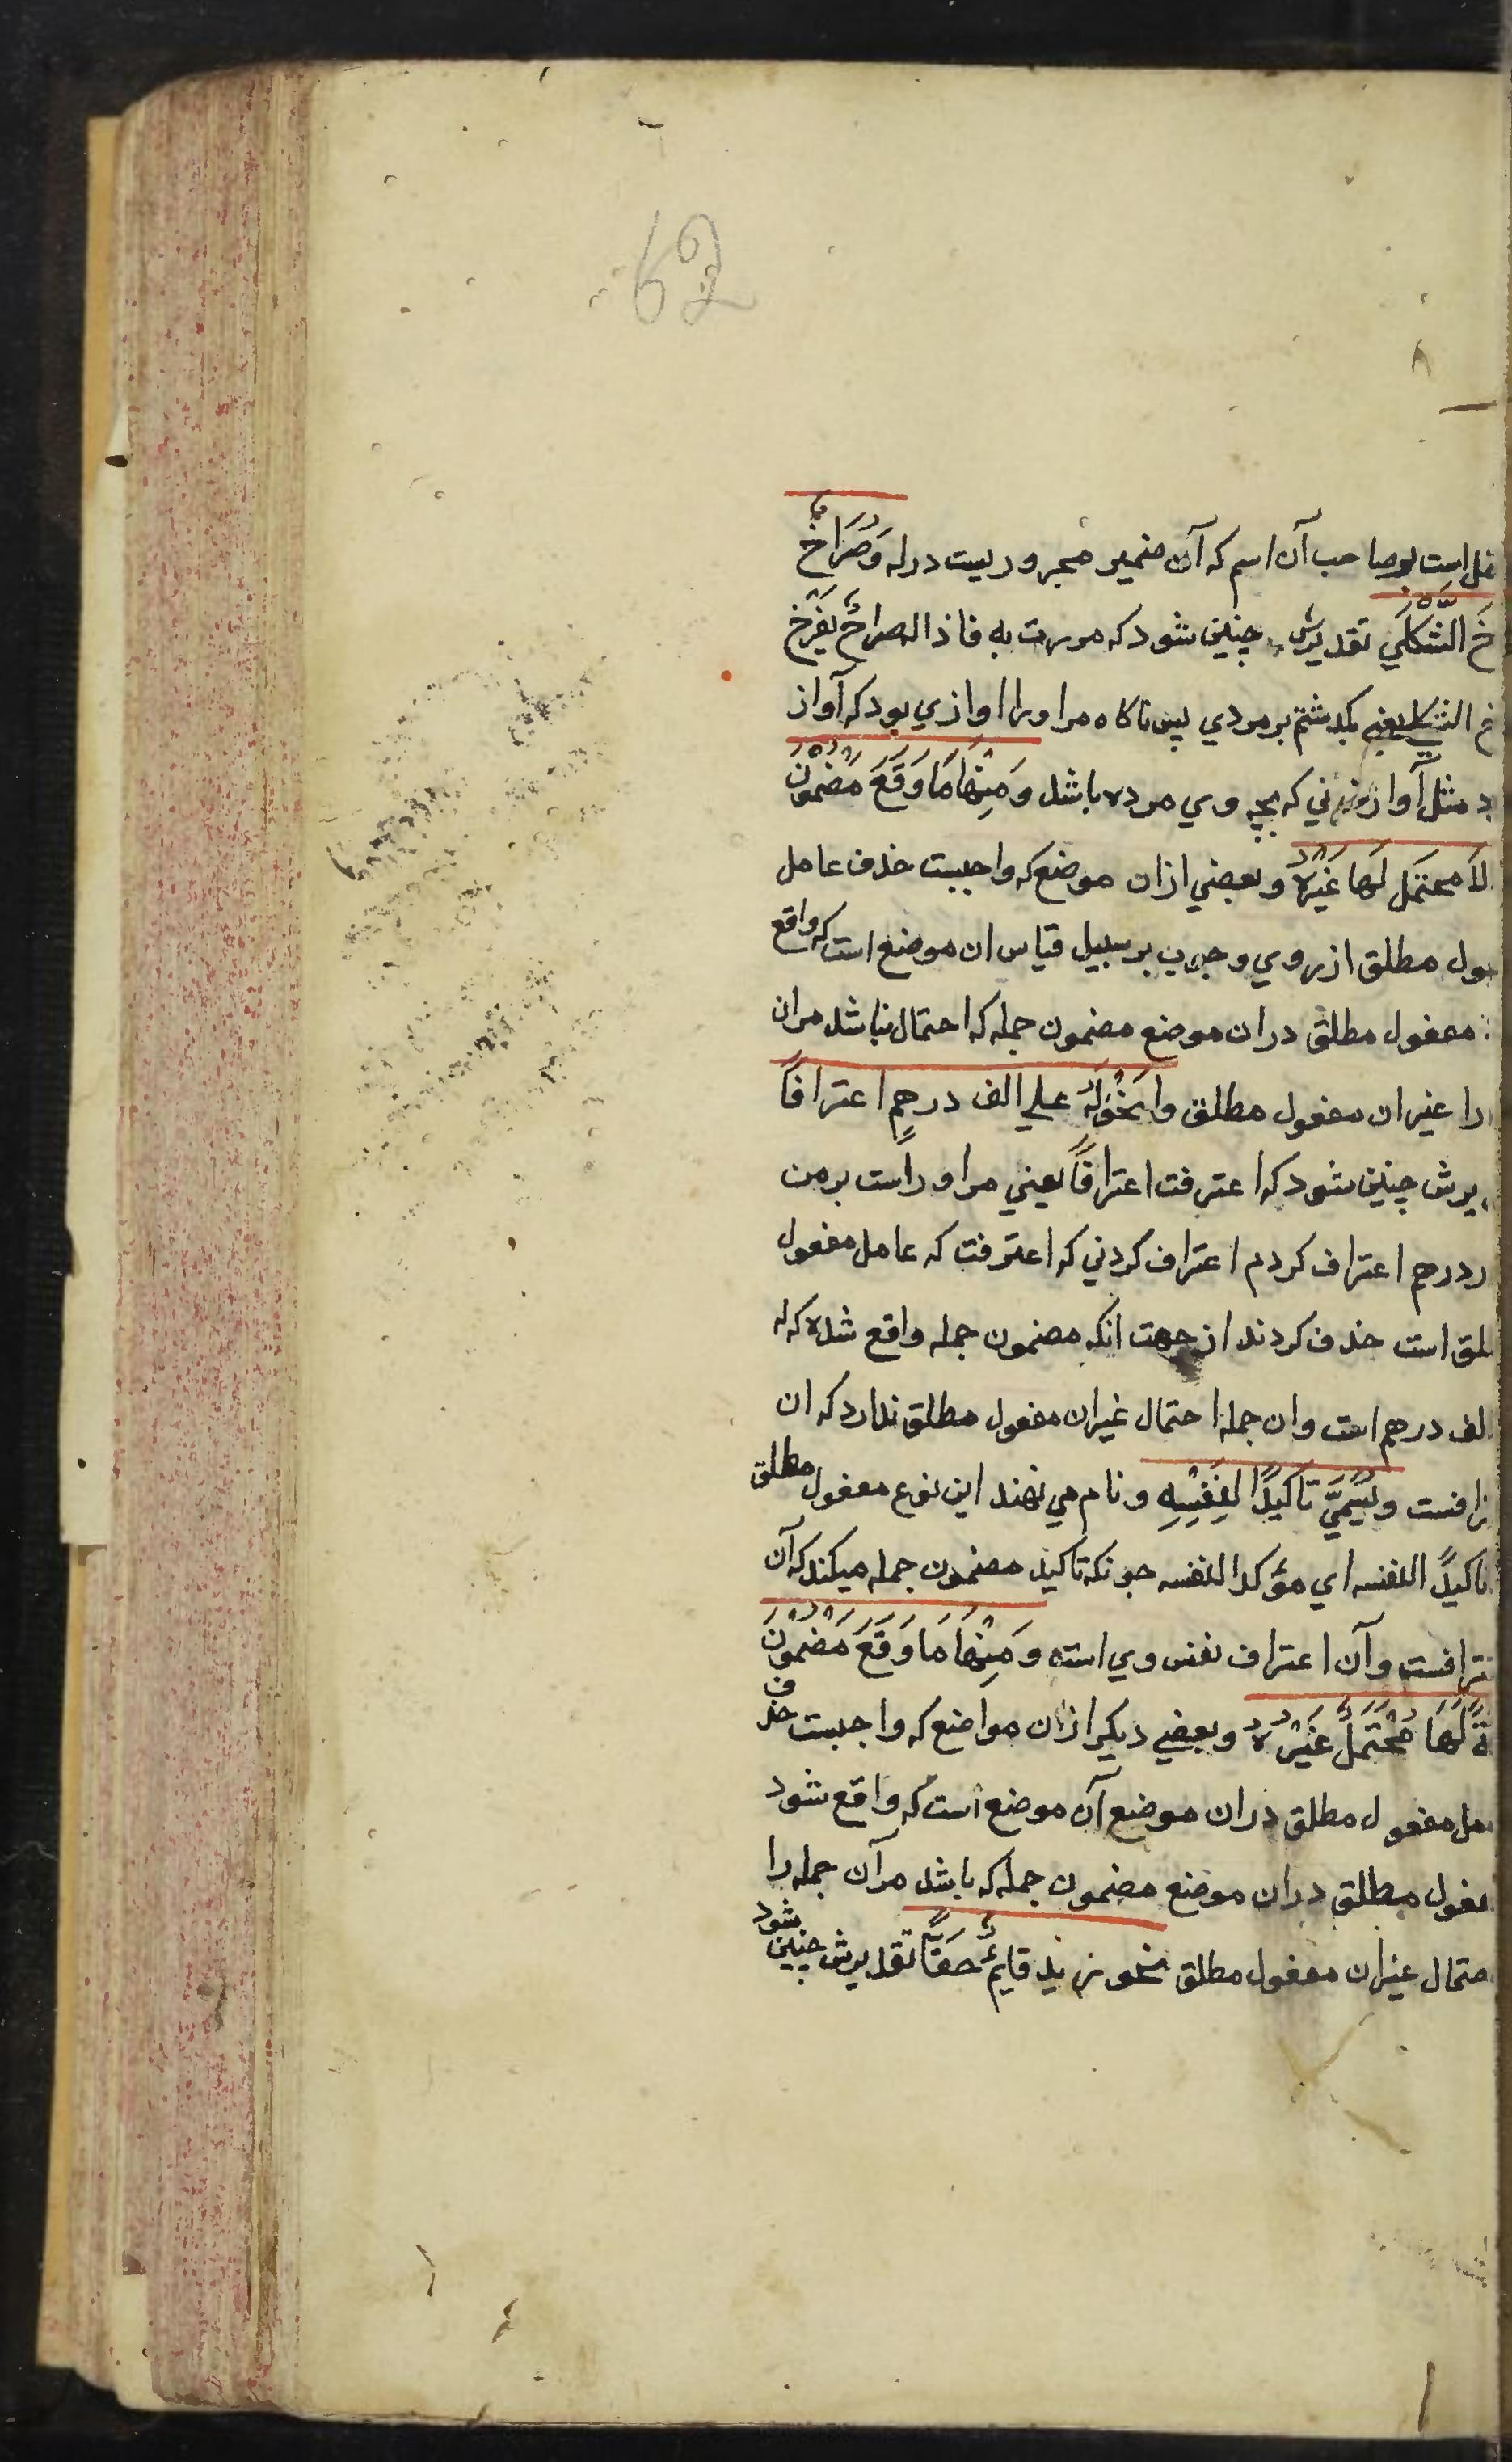 62
است بر صاحب آن اسم که آن ضمیر مجروریست در له وَصُرَاخٌ
خَ الثَّكْلَي تقدیرش چنین شود که مررت به فاذا له صراخٌ یَصْرَخ
خ الثکلی یعنی بکدشتم بر مردي پس ناکاه مر او را اوازي بود که آواز
د مثل آواز زني که بچه وي مرده باشد وَمِنْهَا مَا وَقَعَ مَضْمُونَ
لَا مُحْتَمَلَ لَهَا غَيْرُهُ وبعضي ازان موضع که واجبست حذف عامل
ول مطلق از روي وجوب بر سبیل قیاس ان موضع است که واقع
مفعول مطلق دران موضع مضمون جمله که احتمال نباشد مران
را غیر ان مفعول مطلق وا نَحْوُ لَهُ علي الف درهمٍ اعترافًا
یرش چنین شود که اعترفت اعترافًا یعني مر او راست بر من
ر درهم اعتراف کردم اعتراف کردني که اعترفت که عامل مفعول
لق است حذف کردند از جهت انکه مضمون جمله واقع شده که له
لف درهم است وان جمله احتمال غیر ان مفعول مطلق ندارد که ان
رافست ویُسَمَّيٰ تاکیدًا لِنَفْسِهِ ونام مي نهند این نوع مفعول مطلق
تاکیدًا لنفسه اي مؤکدا لنفسه جونکه تاکید مضمون جمله میکند که آن
ترافست وآن اعتراف نفس وي است وَمِنْهَا مَا وَقَعَ مَضْمُونَ
ةٍ لَهَا مُحْتَمَلٌ غَيْرُهُ وبعضي دیکر ازان مواضع که واجبست حذف
مل مفعول مطلق دران موضع آن موضع است که واقع شود
عول مطلق دران موضع مضمون جمله که باشد مرآن جمله را
حتمال غیر ان مفعول مطلق نحو زید قایمٌ حقًا تقدیرش چنین شود